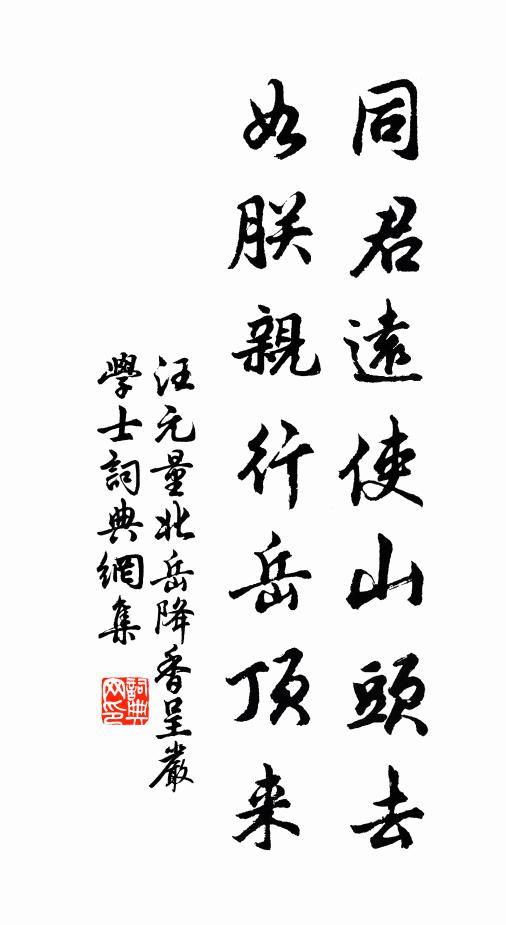 同君遠使山頭去
如朕親行岳頂来
汪元量北岳降香呈嚴
學士詞典網集
詞典網印